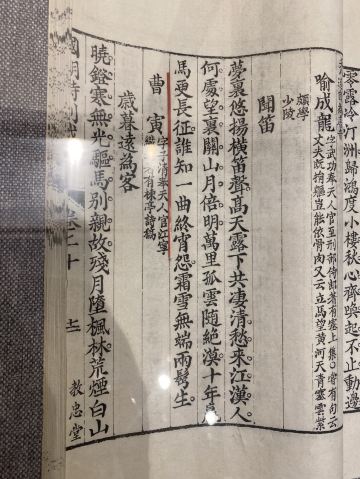 零露冷汀洲歸鴻度小樓秋心齊喚起不止動邊
喻成龍
字武功奉天人官至刑部侍郎著有塞上集
立馬望黃河天青塞雲紫
頗學
少陵
聞笛
夢裏悠揚橫笛聲高天露下共淒清愁來江漢人
何處望裏關山月倍明萬里孤雲隨絕漠十年
馬更長征誰知一曲終宵怨霜雪無端兩鬢生
曹寅
字子清奉天人官江寧
有楝亭詩稿
歲暮遠為客
曉鐙寒無光驅馬別親故殘月墮楓林荒煙白山
國朝詩別
卷二十
十二
教忠堂